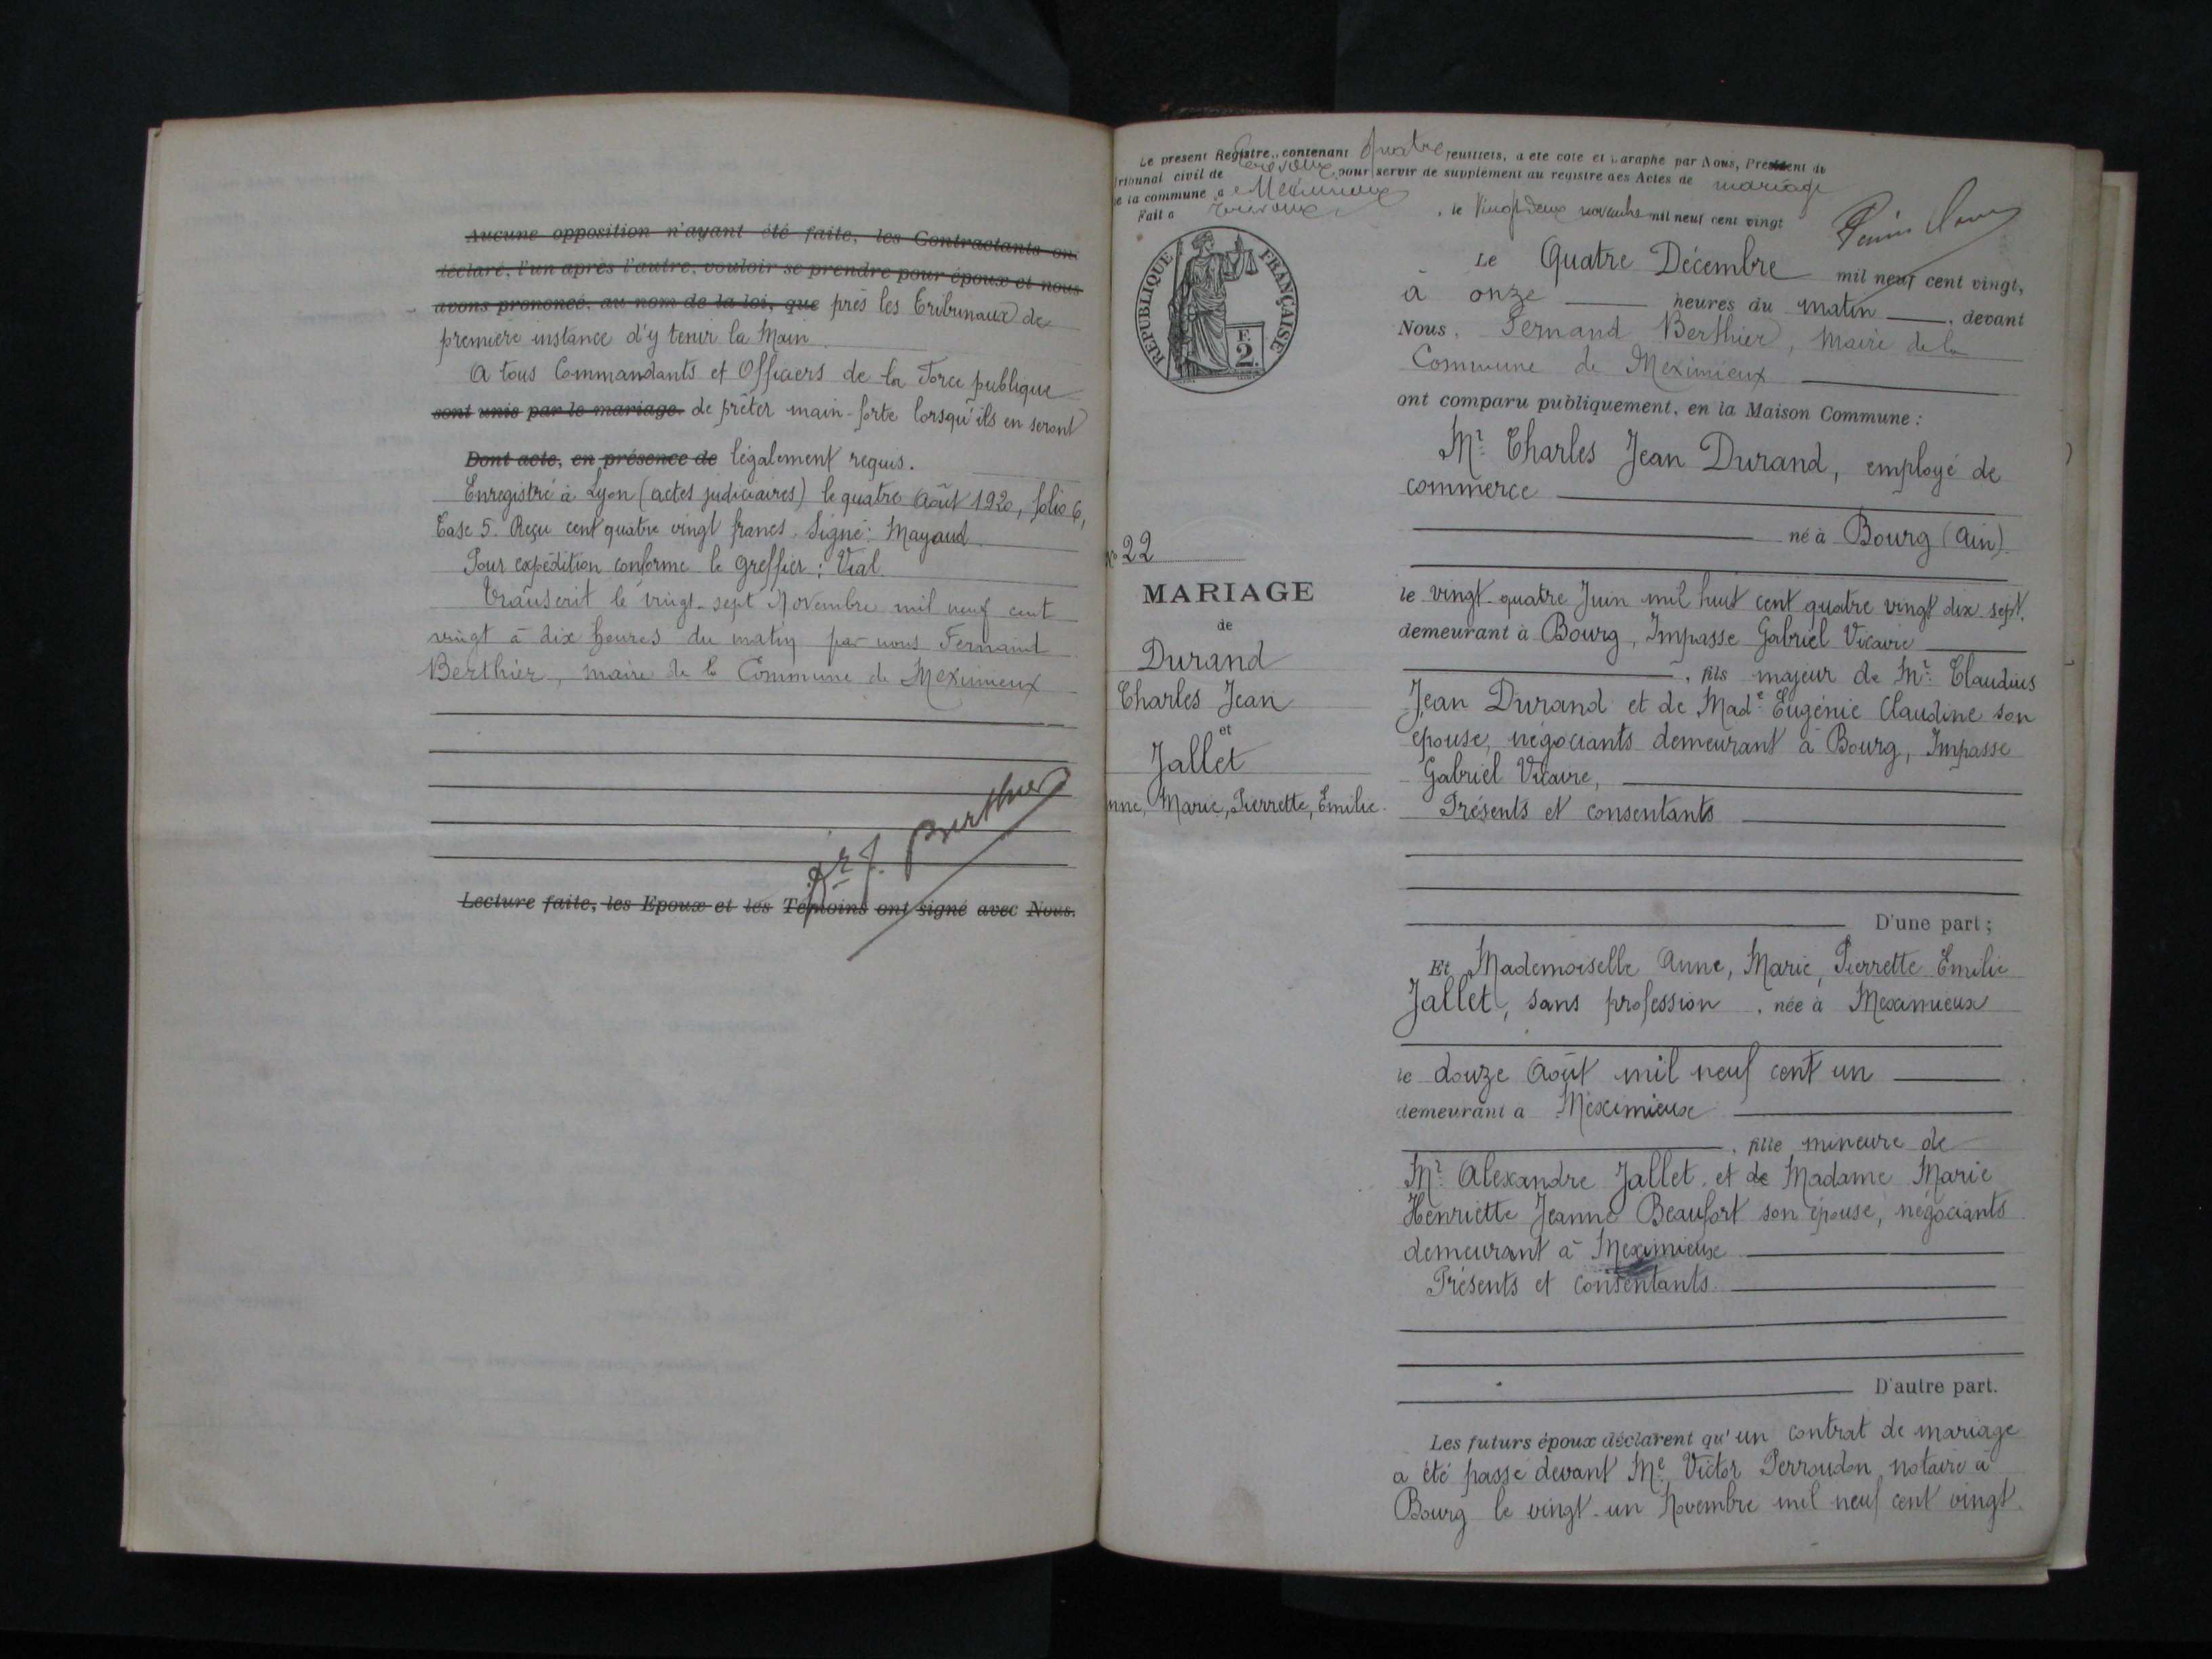 Aucune opposition n'ayant été faite, les Contractants on
déclaré, l'un après l'autre, vouloir se prendre pour époux et nous
avons prononcé, au nom de la loi, que près les Tribunaux de
première instance d'y tenir la Main.
A tous Commandants et Officiers de la Force publique
sont unis par le mariage. de prêter main-forte lorsqu'ils en seront
Dont acte, en présence de légalement requis.
Enregistré à Lyon (actes judiciaires) le quatre Août 1920, folio 6,
Case 5. Reçu cent quatre vingt francs. Signé: Mayaud
Pour expédition conforme le Greffier : Vial
Transcrit le vingt-sept Novembre mil neuf cent
vingt à dix heures du matin par nous Fernand
Berthier, maire de la Commune de Meximieux
Dr F. Berthier
Lecture faite, les Epoux et les Témoins ont signé avec Nous.
Le présent Registre, contenant quatre feuillets, a été coté et paraphé par Nous, Président du
Tribunal civil de Trévoux, pour servir de supplément au registre des Actes de mariage
de la commune de Meximieux
Fait à Trévoux, le Vingt deux novembre mil neuf cent vingt
RÉPUBLIQUE FRANÇAISE
F.
2.
Le Quatre Décembre mil neuf cent vingt,
à onze heures du matin, devant
Nous, Fernand Berthier, Maire de la
Commune de Meximieux
ont comparu publiquement, en la Maison Commune :
Mr Charles Jean Durand, employé de
commerce
né à Bourg (Ain).
le vingt-quatre Juin mil huit cent quatre vingt dix-sept,
demeurant à Bourg, Impasse Gabriel Vicaire
, fils majeur de Mr Claudius
Jean Durand et de Made Eugénie Claudine son
épouse, négociants demeurant à Bourg, Impasse
Gabriel Vicaire,
Présents et consentants
D'une part ;
Et Mademoiselle Anne, Marie, Pierrette Emilie
Jallet, sans profession, née à Meximieux
le douze Août mil neuf cent un
demeurant à Meximieux
, fille mineure de
Mr Alexandre Jallet et de Madame Marie
Henriette Jeanne Beaufort son épouse, négociants
demeurant à Meximieux
Présents et consentants.
D'autre part.
Les futurs époux déclarent qu'un contrat de mariage
a été passé devant Me Victor Perroudon notaire à
Bourg le vingt-un Novembre mil neuf cent vingt.
No 22
MARIAGE
de
Durand
Charles Jean
et
Jallet
nne, Marie, Pierrette, Emilie.